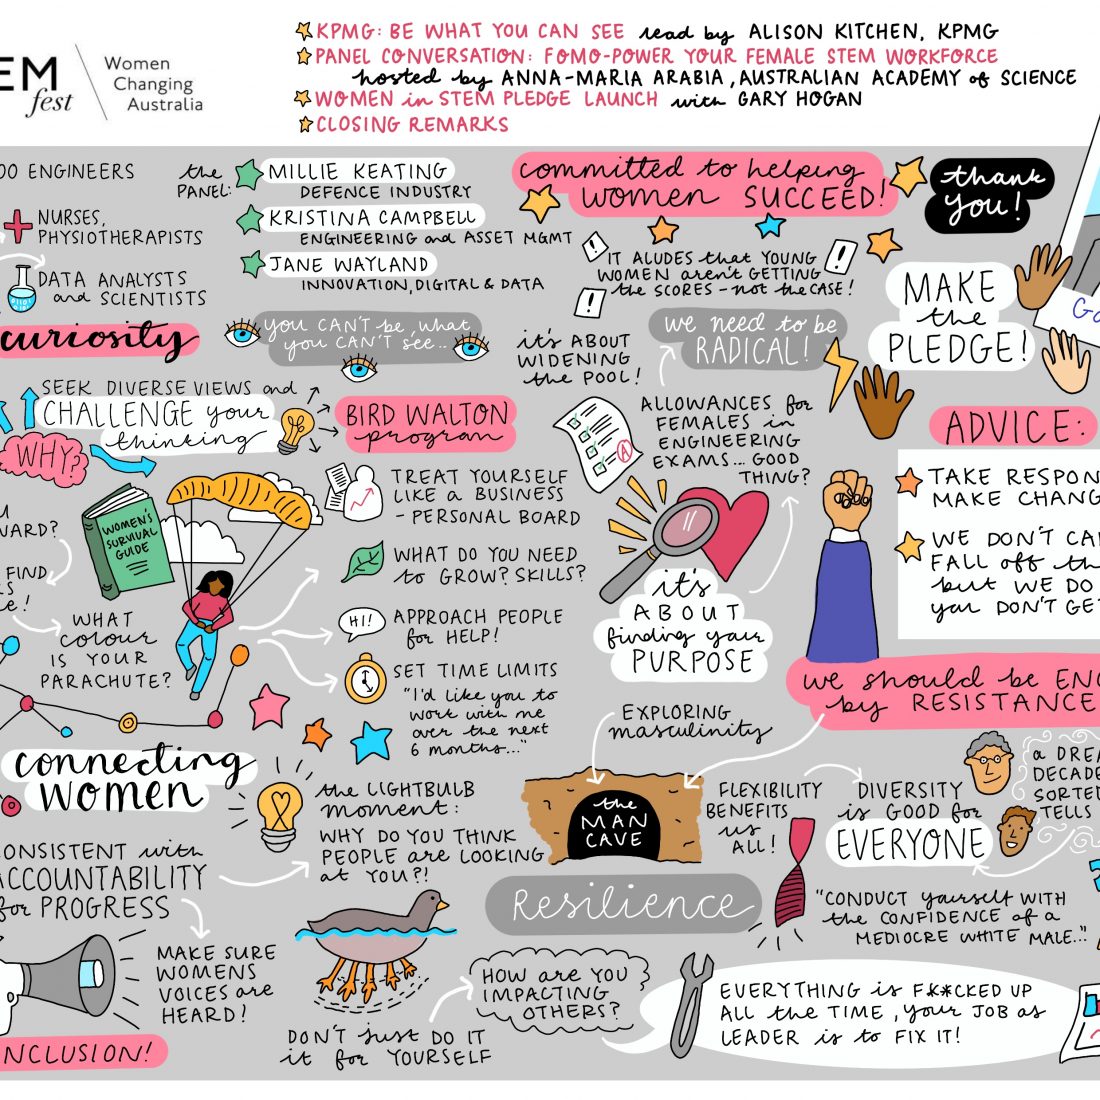 EM
fest
Women
Changing
Australia
KPMG: BE WHAT YOU CAN SEE read by ALISON KITCHEN, KPMG
PANEL CONVERSATION: FOMO-POWER YOUR FEMALE STEM WORKFORCE
hosted by ANNA-MARIA ARABIA, AUSTRALIAN ACADEMY of SCIENCE
WOMEN in STEM PLEDGE LAUNCH with GARY HOGAN
CLOSING REMARKS
00 ENGINEERS
NURSES,
PHYSIOTHERAPISTS
DATA ANALYSTS
and SCIENTISTS
the
PANEL:
MILLIE KEATING
DEFENCE INDUSTRY
KRISTINA CAMPBELL
ENGINEERING and ASSET MGMT
JANE WAYLAND
INNOVATION, DIGITAL & DATA
committed to helping
WOMEN SUCCEED!
thank
you!
IT ALUDES that YOUNG
WOMEN aren't GETTING
the SCORES - not the CASE!
MAKE
the
PLEDGE!
curiosity
you CAN'T be, what
you CAN'T see..
it's ABOUT
WIDENING
the POOL!
we need to be
RADICAL!
SEEK DIVERSE VIEWS and
CHALLENGE your
thinking
WHY?
BIRD WALTON
program
ALLOWANCES for
FEMALES in
ENGINEERING
EXAMS... GOOD
THING?
A
ADVICE:
TAKE RESPON
MAKE CHANG
WE DON'T CA
FALL off th
but WE DO
you DON'T GE
WARD?
FIND
WOMEN'S
SURVIVAL
GUIDE
WHAT
colour
IS YOUR
PARACHUTE?
TREAT YOURSELF
LIKE a BUSINESS
- PERSONAL BOARD
WHAT DO YOU NEED
to GROW? SKILLS?
HI!
APPROACH PEOPLE
for HELP!
SET TIME LIMITS
"I'd like you to
work with me
over the next
6 months..."
it's
ABOUT
finding your
PURPOSE
we should be EN
by RESISTANCE
connecting
WOMEN
the LIGHTBULB
moment:
WHY DO YOU THINK
PEOPLE are LOOKING
at YOU?!
EXPLORING
masculinity
the
MAN
CAVE
FLEXIBILITY
BENEFITS
us
ALL!
DIVERSITY
is GOOD for
EVERYONE
a DREA
DECADE
SORTED
TELLS
CONSISTENT with
ACCOUNTABILITY
for PROGRESS
Resilience
"CONDUCT yourself WITH
the CONFIDENCE of a
MEDIOCRE WHITE MALE..."
MAKE SURE
WOMENS
VOICES are
HEARD!
NCLUSION!
DON'T just DO IT
it for YOURSELF
HOW are YOU
IMPACTING
OTHERS?
EVERYTHING is F**CKED UP
ALL the TIME, your JOB as
LEADER is to FIX IT!